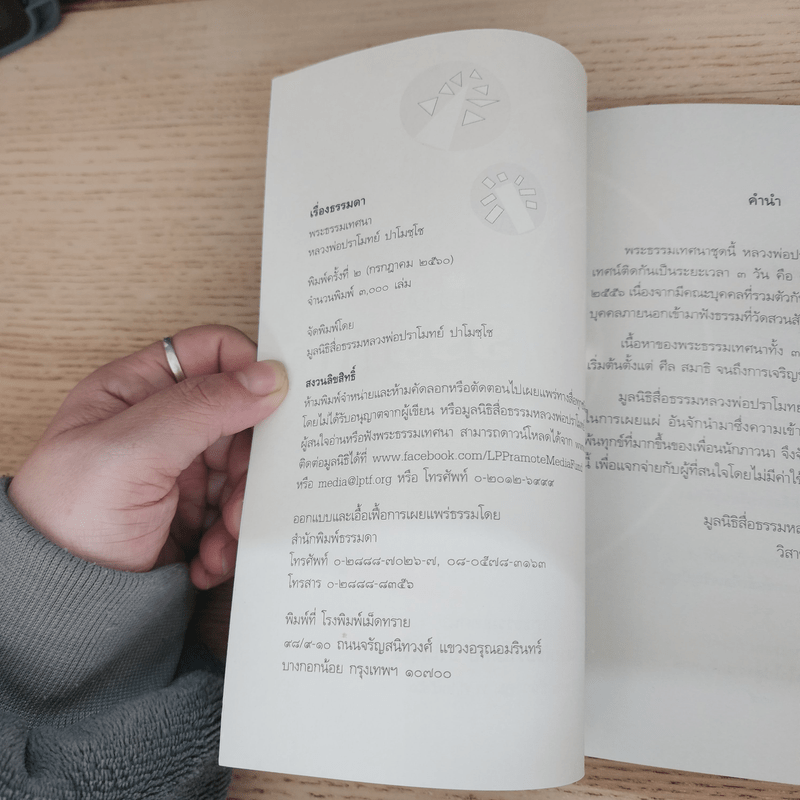 เรื่องธรรมดา
พระธรรมเทศนา
หลวงพ่อปราโมทย์ ปาโมชฺโช
พิมพ์ครั้งที่ ๒ (กรกฎาคม ๒๕๖๐)
จำนวนพิมพ์ ๓,๐๐๐ เล่ม
จัดพิมพ์โดย
มูลนิธิสื่อธรรมหลวงพ่อปราโมทย์ ปาโมชฺโช
สงวนลิขสิทธิ์
ห้ามพิมพ์จำหน่ายและห้ามคัดลอกหรือตัดตอนไปเผยแพร่ทางสื่อทุก
โดยไม่ได้รับอนุญาตจากผู้เขียน หรือมูลนิธิสื่อธรรมหลวงพ่อปราโมทย์
ผู้สนใจอ่านหรือฟังพระธรรมเทศนา สามารถดาวน์โหลดได้จาก
ติดต่อมูลนิธิได้ที่ www.facebook.com/LPPramoteMediaFund
หรือ media@lptf.org หรือ โทรศัพท์ ๐-๒๐๑๒-๖๙๙๙
ออกแบบและเอื้อเฟื้อการเผยแพร่ธรรมโดย
สำนักพิมพ์ธรรมดา
โทรศัพท์ ๐-๒๘๘๘-๗๐๒๖-๗, ๐๘-๐๕๗๘-๓๑๖๓
โทรสาร ๐-๒๘๘๘-๘๓๕๖
พิมพ์ที่ โรงพิมพ์เม็ดทราย
๙๘/๙-๑๐ ถนนจรัญสนิทวงศ์ แขวงอรุณอมรินทร์
บางกอกน้อย กรุงเทพฯ ๑๐๗๐๐
คำนำ
พระธรรมเทศนาชุดนี้ หลวงพ่อ
เทศน์ติดกันเป็นระยะเวลา ๓ วัน คือ
๒๕๕๖ เนื่องจากมีคณะบุคคลที่รวมตัวกัน
บุคคลภายนอกเข้ามาฟังธรรมที่วัดสวน
เนื้อหาของพระธรรมเทศนาทั้ง ๓
เริ่มต้นตั้งแต่ ศีล สมาธิ จนถึงการเจริญ
มูลนิธิสื่อธรรมหลวงพ่อปราโมทย์
ในการเผยแผ่ อันจักนำมาซึ่งความเข้า
พ้นทุกข์ที่มากขึ้นของเพื่อนนักภาวนา จึง
นี้ เพื่อแจกจ่ายกับผู้ที่สนใจโดยไม่มีค่าใช้
มูลนิธิสื่อธรรม